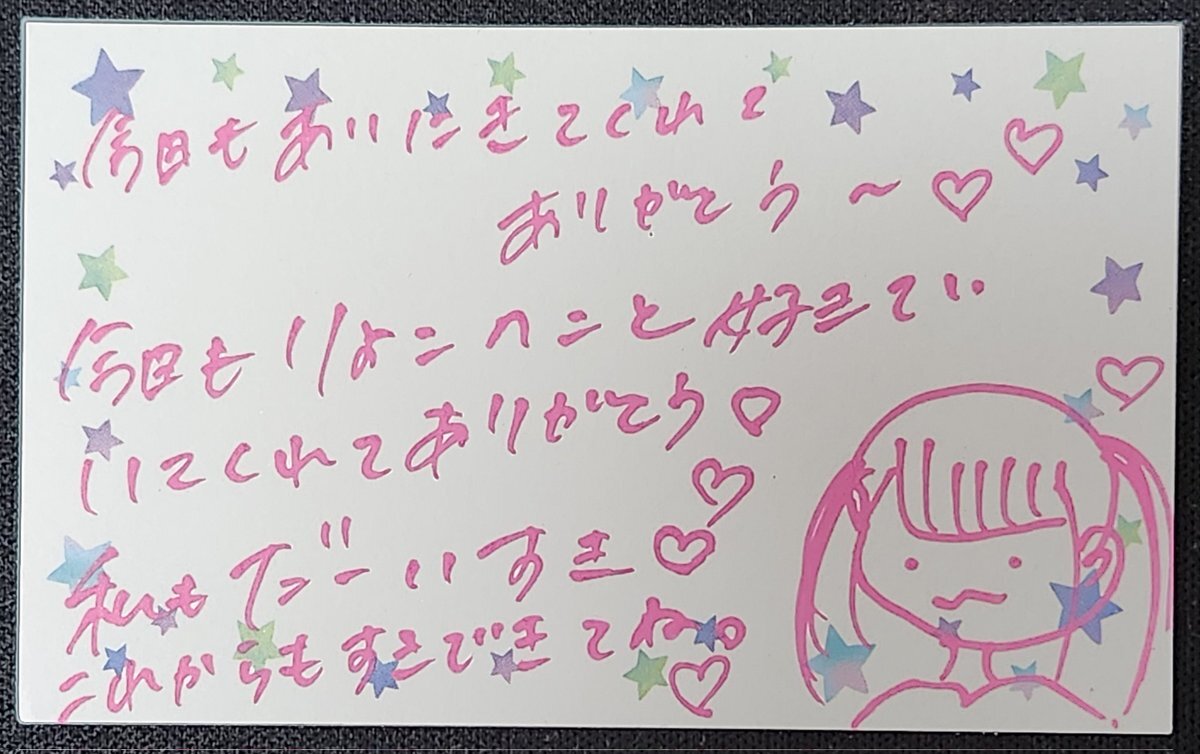 今日もあいにきてくれて
ありがとう〜♡♡
今日もりょこへこと好きでい
いてくれてありがとう♡
私もだーいすき♡♡
これからもすきできてね。♡